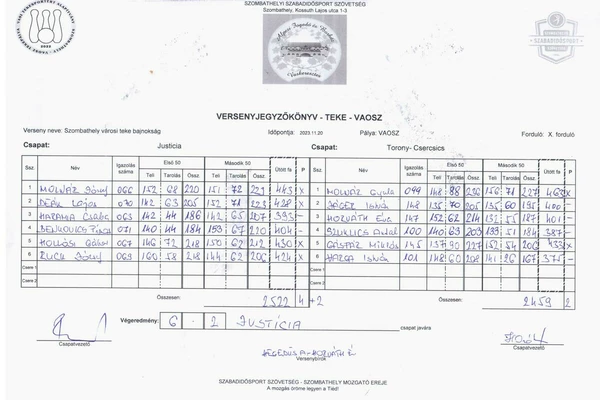 SZOMBATHELYI SZABADIDŐSPORT SZÖVETSÉG
Szombathely, Kossuth Lajos utca 1-3
2022
Vaskeresztes
SZABADIDŐSPORT
VERSENYJEGYZŐKÖNYV - TEKE - VAOSZ
Verseny neve: Szombathely városi teke bajnokság Időpontja: 2023.11.20 Pálya: VAOSZ Forduló: X. forduló
Csapat: Justícia Csapat: Torony- Csercsics
Ssz. Név Igazolás száma Első 50 Második 50 Ütött fa P Ssz. Név Igazolás száma Első 50 Második 50 Ütött fa P
Teli Tarolás Összesen Teli Tarolás Összesen Teli Tarolás Összesen Teli Tarolás Összesen
1 066 152 68 220 151 72 223 443 P 1 Molnár Gyula 099 148 88 236 156 71 227 463
2 Deák Lajos 070 142 63 205 152 71 223 428 X 2 Jáger István 148 135 70 205 135 60 195 400 -
3 063 142 44 186 142 65 207 393 - 3 Horváth Éva 147 152 62 214 132 55 187 401 -
4 071 140 44 184 153 67 220 404 - 4 Antal 100 140 63 203 133 51 184 387 -
5 Hollósi Gábor 067 146 72 218 150 62 212 430 X 5 Gáspár Miklós 145 137 90 227 152 54 206 433
6 069 160 58 218 144 62 206 424 X 6 Harga István 101 148 60 208 141 26 167 375 -
Csere 1 Csere 1
Csere 2 Csere 2
Összesen: 2522 4 +2 Összesen: 2459 2
Végeredmény: 6 - 2 JUSTÍCIA csapat javára
Csapatvezető Csapatvezető
Versenybírók
SZABADIDŐSPORT SZÖVETSÉG - SZOMBATHELY MOZGATÓ EREJE
A mozgás öröme legyen a Tiéd!